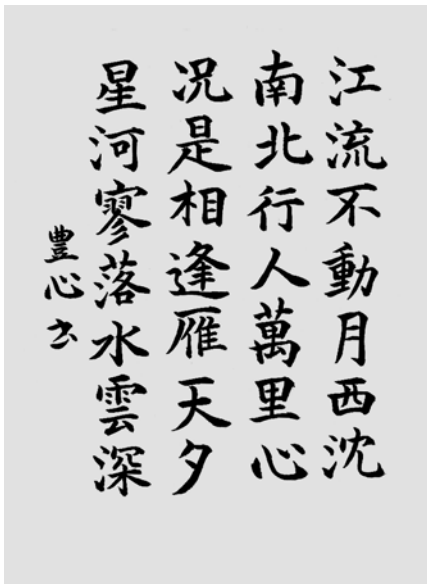 江流不動月西沈
南北行人萬里心
況是相逢雁天夕
星河寥落水雲深
豊心書